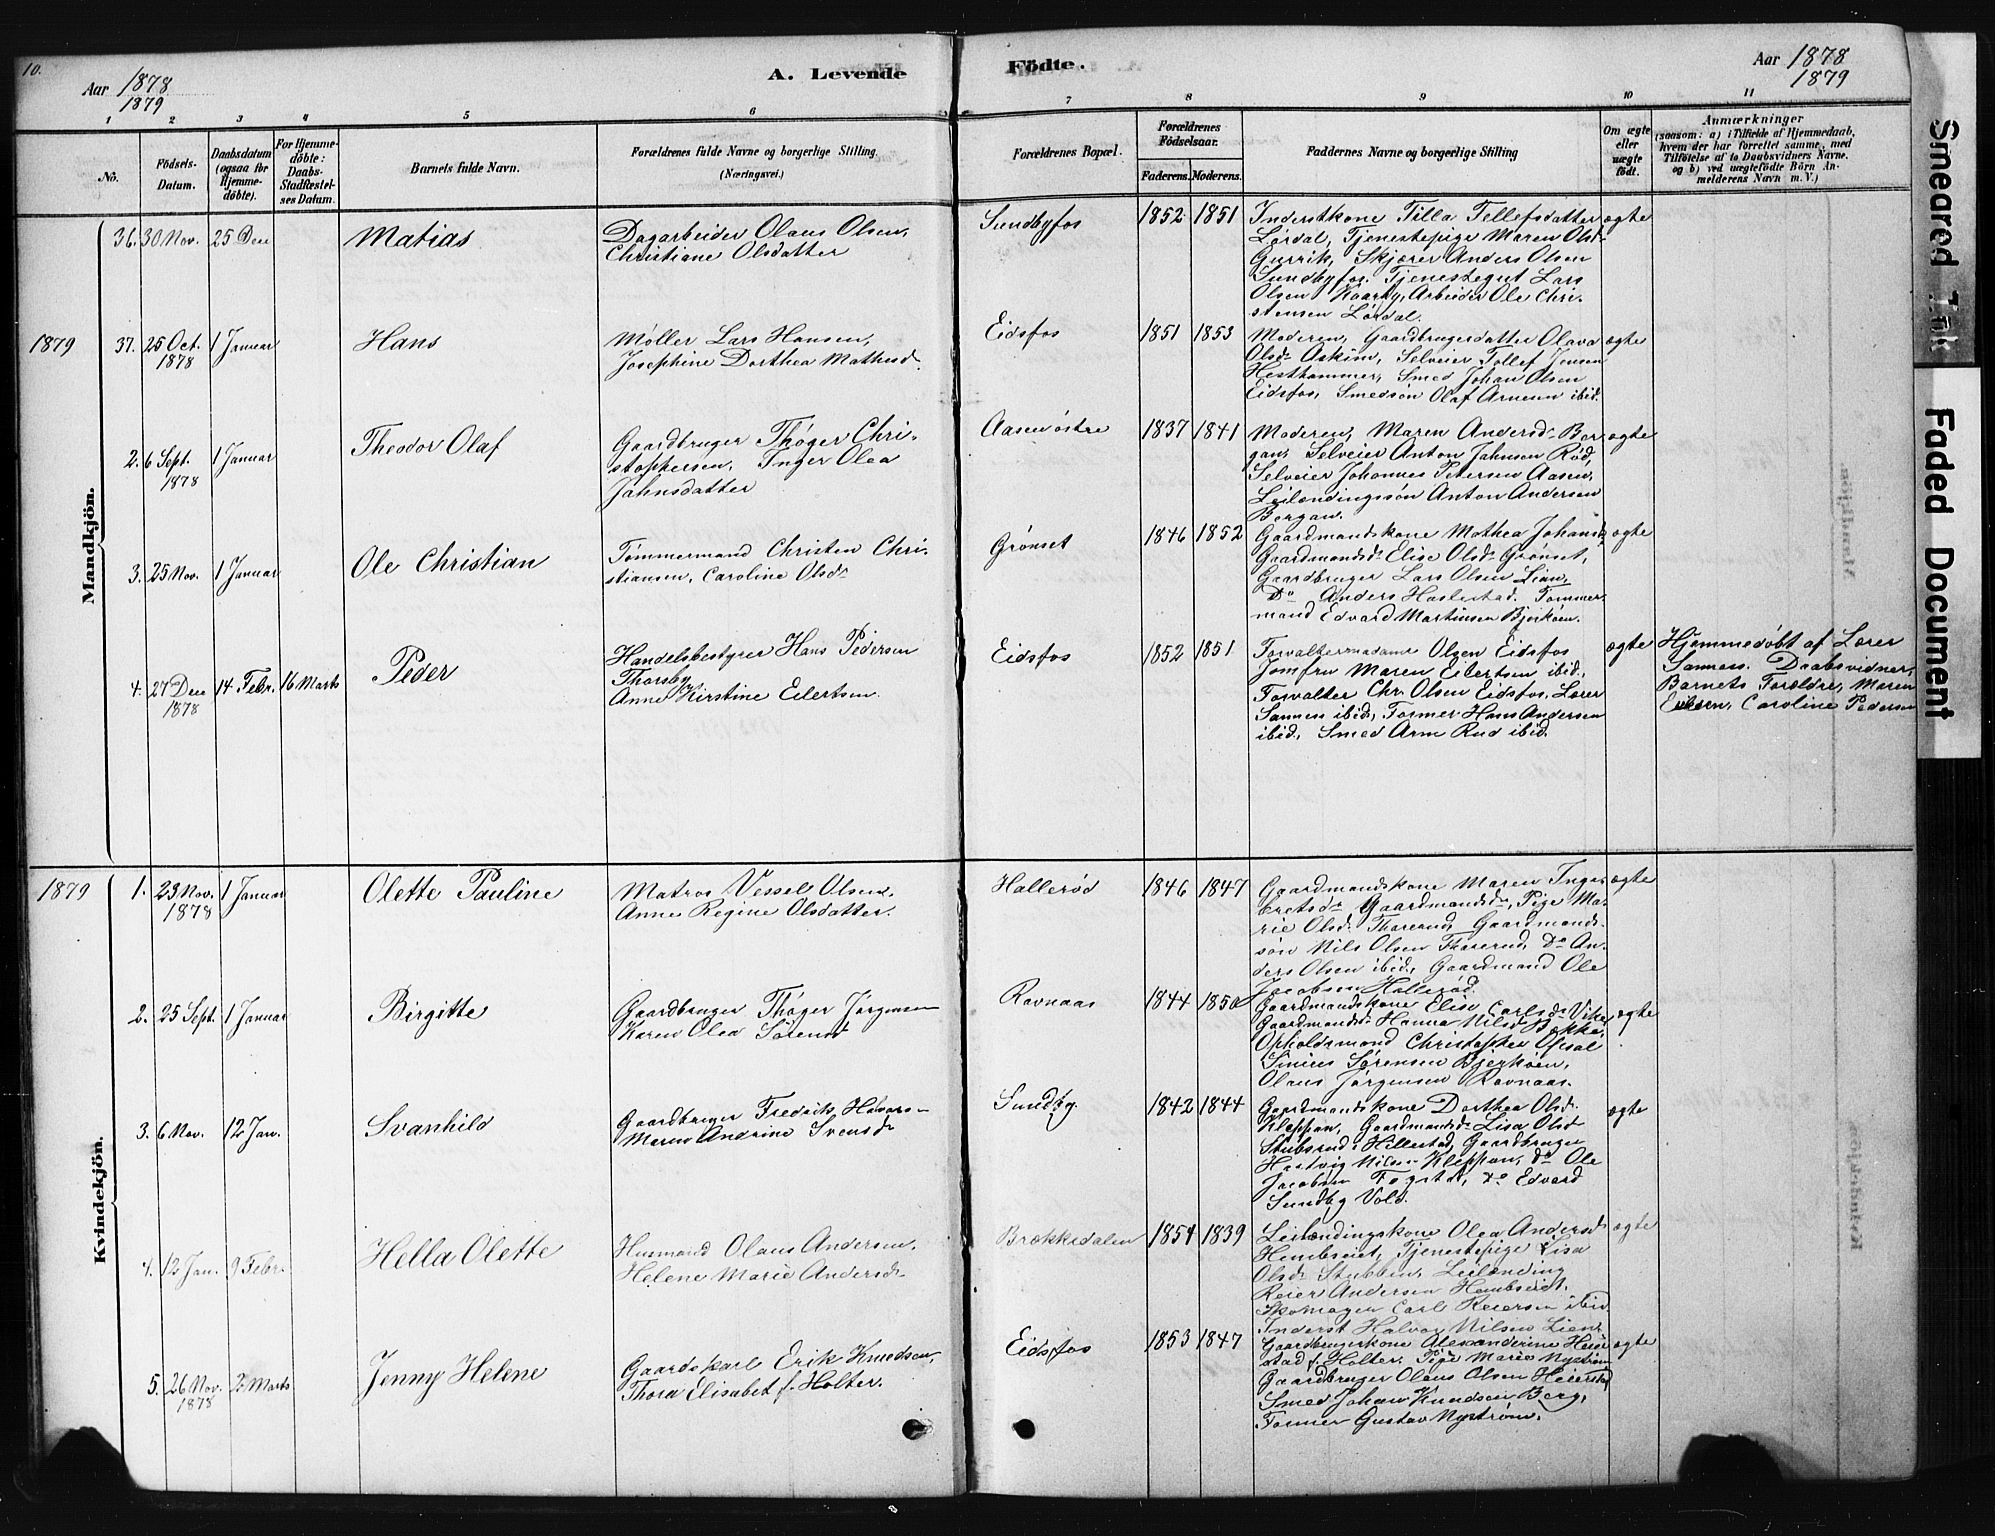 10.
Aar 1878
1879
A. Levende
Födte.
Aar 1878
1879
1 2 3 4 5 6 7 8 9 10 11
No.
Födsels-
Datum.
Daabsdatum
(ogsaa for
Hjemme-
döbte).
For Hjemme-
döbte:
Daabs-
Stadfæstel-
ses Datum.
Barnets fulde Navn.
Forældrenes fulde Navne og borgerlige Stilling
(Næringsvei.)
Forældrenes Bopæl.
Forældrenes
Födselsaar.
Faderens. Moderens.
Faddernes Navne og borgerlige Stilling
Om ægte
eller
uægte
født.
Anmærkninger
(saasom: a) i Tilfælde af Hjemmedaab,
hvem der har forrettet samme, med
Tilføielse af to Daabsvidners Navne.
og b) ved uægtefödte Börn An-
melderens Navn m. V.)
Mandkjön.
36. 30 Nov. 25 Dec
Matias
Dagarbeider Olaus Olsen,
Christiane Olsdatter
Sundbyfos
1852 1851
Inderstkone Tilla Tellefsdatter
Lørdal, Tjenestepige Maren Olsd.
Gurrik, Skjærer Anders Olsen
Sundbyfos. Tjenestegut Lars
Olsen Kaarby, Arbeider Ole Chri-
stensen Lørdal.
ægte
1879
37. 25 Oct. 1 Januar
1878
Hans
Møller Lars Hansen,
Josephine Dorthea Mathisd.
Eidsfos
1851 1853
Moderen, Gaardbrugerdatter Olava
Olsdr Askim, Selveier Tollef Jensen
Hesthammer, Smed Johan Olsen
Eidsfos, Smedsøn Olaf Arnesen ibid.
ægte
2. 6 Sept. 1 Januar
1878
Theodor Olaf
Gaardbruger Thøger Chri-
stophersen, Inger Olea
Jahnsdatter
Aasen østre
1837 1841
Moderen, Maren Andersdr Ber-
gan, Selveier Anton Jahnsen Rød,
Selveier Johannes Petersen Aasen,
Leilændingssøn Anton Andersen
Bergan.
ægte
3. 25 Nov. 1 Januar
Ole Christian
Tømmermand Christen Chri-
stiansen, Caroline Olsdr
Grønset
1846 1852
Gaardmandskone Mathea Johansd.
Gaardmandsdr Elise Olsdr Grønset,
Gaardbruger Lars Olsen Lian,
Do Anders Haslestad. Tømmer-
mand Edvard Martinsen Bjerkøen.
ægte
4. 27 Dec 14 Febr. 16 Marts
1878
Peder
Handelsbestyrer Hans Pedersen
Thorsby
Anne Kirstine Eilertsen.
Eidsfos
1852 1851
Forvaltermadame Olsen Eidsfos
Jomfru Maren Eilertsen ibid.,
Forvalter Chr. Olsen Eidsfos, Lærer
Sannes ibid., Former Hans Andersen
ibid., Smed Arn Rud ibid.
ægte
Hjemmedøbt af Lærer
Sannes. Daabsvidner,
Barnets Forældre, Maren
Caroline Pedersen
Kvindekjön.
1879
1. 23 Nov. 1 Januar
1878
Olette Pauline
Matros Vessel Olsen,
Anne Regine Olsdatter.
Hallerød
1846 1847
Gaardmandskone Maren Inge-
bretsdr Gaardmandsdr, Pige Ma-
rie Olsd. Thorerud, Gaardmands-
søn Nils Olsen Thorerud, Do An-
ders Olsen ibid., Gaardmand Ole
Jacobsen Hallerød.
ægte
2. 25 Sept. 1 Januar
Birgitte
Gaardbruger Thøger Jørgensen
Karen Olea Sørensd
Ravnaas
1844 1850
Gaardmandskone Elise Carlsdr Vike,
Gaardmandsdr Hanna Nilsdr Bakke,
Opholdsmand Christopher Ofsal
Simen Sørensen Bjerkøen,
Olaus Jørgensen Ravnaas.
ægte
3. 6 Nov. 12 Jan.
Svanhild
Gaardbruger Fredrik Halvors-
Maren Andrine Svensdr
Sundby
1842 1844
Gaardmandskone Dorthea Olsd.
Kleppan, Gaardmandsdr Lisa Olsd
Stubsrud i Hillestad, Gaardbruger
Hartvig Nilsen Kleppan, do Ole
Jacobsen Fogstad, do Edvard
Sundby Vold.
ægte
4. 12 Jan. 9 Febr.
Hella Olette
Husmand Olaus Andersen,
Helene Marie Andersdr
Brækkedalen
1854 1839
Leilændingskone Olea Andersd
Hembseiet, Tjenestepige Lisa
Olsdr Stubben, Leilænding
Reier Andersen Hembseiet.
Skomager Carl Reiersen ibid
Inderst Halvor Nilsen Lien
ægte
5. 26 Nov. 2 Marts
1878
Jenny Helene
Gaardskarl Erik Knudsen,
Thora Elisabet f. Holter.
Eidsfos
1853 1847
Gaardbrugerkone Alexanderine Heier-
stad f. Holter. Pige Marie Nystrøm
Gaardbruger Olaus Olsen Heierstad
Smed Johan Knudsen Berg,
Former Gustav Nystrøm.
ægte
Smeared Ink
Faded Document